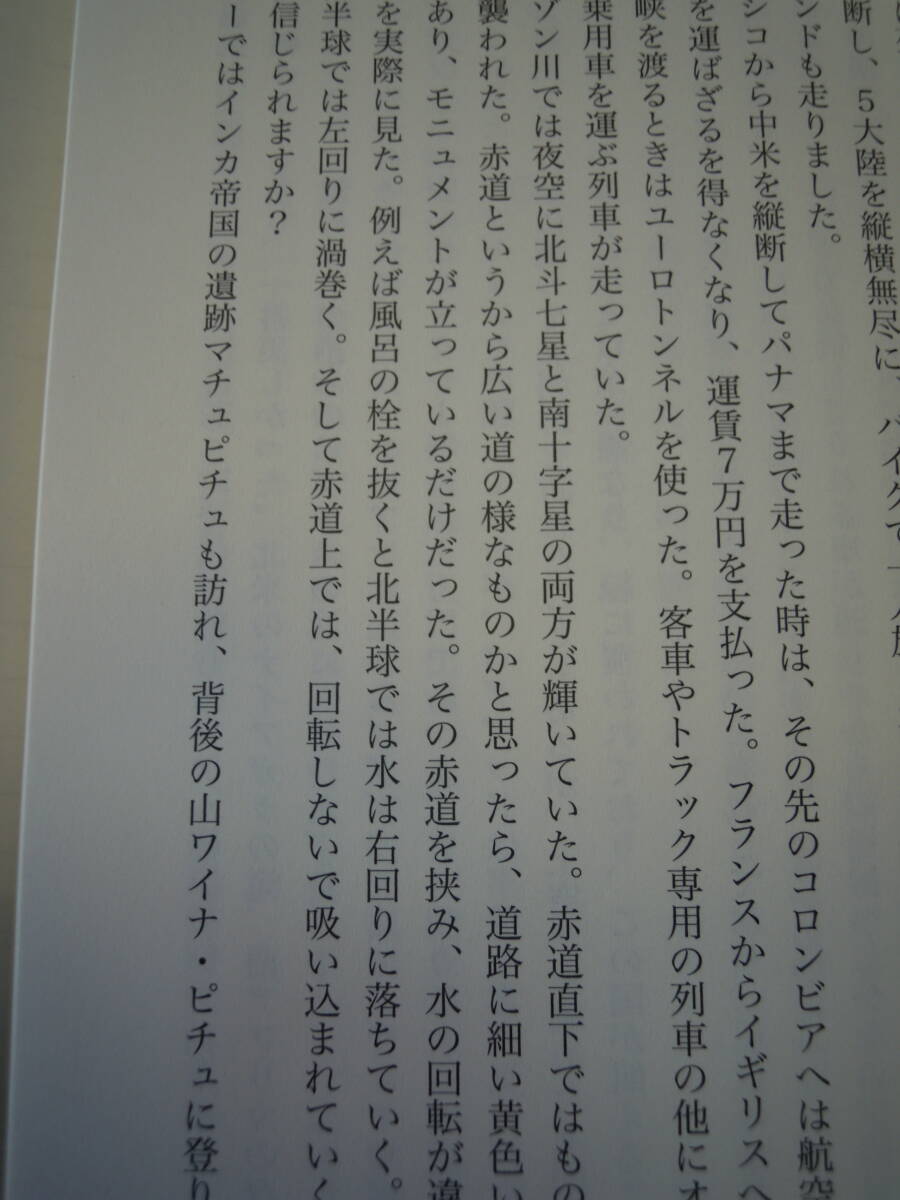 断し、5大陸を縦横無尽に、バイクで一人旅
ンドも走りました。
シコから中米を縦断してパナマまで走った時は、その先のコロンビアへは航空
を運ばざるを得なくなり、運賃7万円を支払った。フランスからイギリスへ
峡を渡るときはユーロトンネルを使った。客車やトラック専用の列車の他にオ
乗用車を運ぶ列車が走っていた。
ゾン川では夜空に北斗七星と南十字星の両方が輝いていた。赤道直下ではもの
襲われた。赤道というから広い道の様なものかと思ったら、道路に細い黄色い
あり、モニュメントが立っているだけだった。その赤道を挟み、水の回転が違
を実際に見た。例えば風呂の栓を抜くと北半球では水は右回りに落ちていく。
半球では左回りに渦巻く。そして赤道上では、回転しないで吸い込まれていく
信じられますか?
ーではインカ帝国の遺跡マチュピチュも訪れ、背後の山ワイナ・ピチュに登り